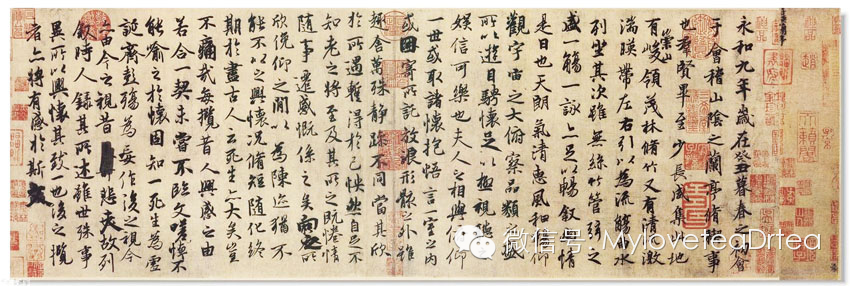 永和九年歲在癸丑暮春之初會
于會稽山陰之蘭亭脩稧事
也羣賢畢至少長咸集此地
有崇山峻領茂林脩竹又有清流激
湍暎帶左右引以為流觴曲水
列坐其次雖無絲竹管弦之
盛一觴一詠亦足以暢敘幽情
是日也天朗氣清惠風和暢仰
觀宇宙之大俯察品類之盛
所以遊目騁懷足以極視聽之
娛信可樂也夫人之相與俯仰
一世或取諸懷抱悟言一室之內
或因寄所託放浪形骸之外雖
趣舍萬殊靜躁不同當其欣
於所遇蹔得於己怏然自足不
知老之將至及其所之既惓情
隨事遷感慨係之矣向之所
欣俛仰之閒以為陳迹猶不
能不以之興懷況脩短隨化終
期於盡古人云死生亦大矣豈
不痛哉每攬昔人興感之由
若合一契未嘗不臨文嗟悼不
能喻之於懷固知一死生為虛
誕齊彭殤為妄作後之視今
亦由今之視昔悲夫故列
敘時人錄其所述雖世殊事
異所以興懷其致一也後之攬
者亦將有感於斯文
微信号: MyloveteaDrtea